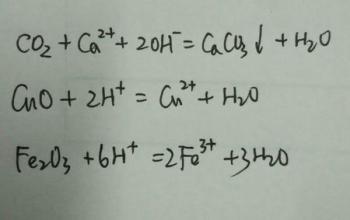 CO₂ + Ca²⁺ + 2OH⁻ = CaCO₃↓ + H₂O
CuO + 2H⁺ = Cu²⁺ + H₂O
Fe₂O₃ + 6H⁺ = 2Fe³⁺ + 3H₂O